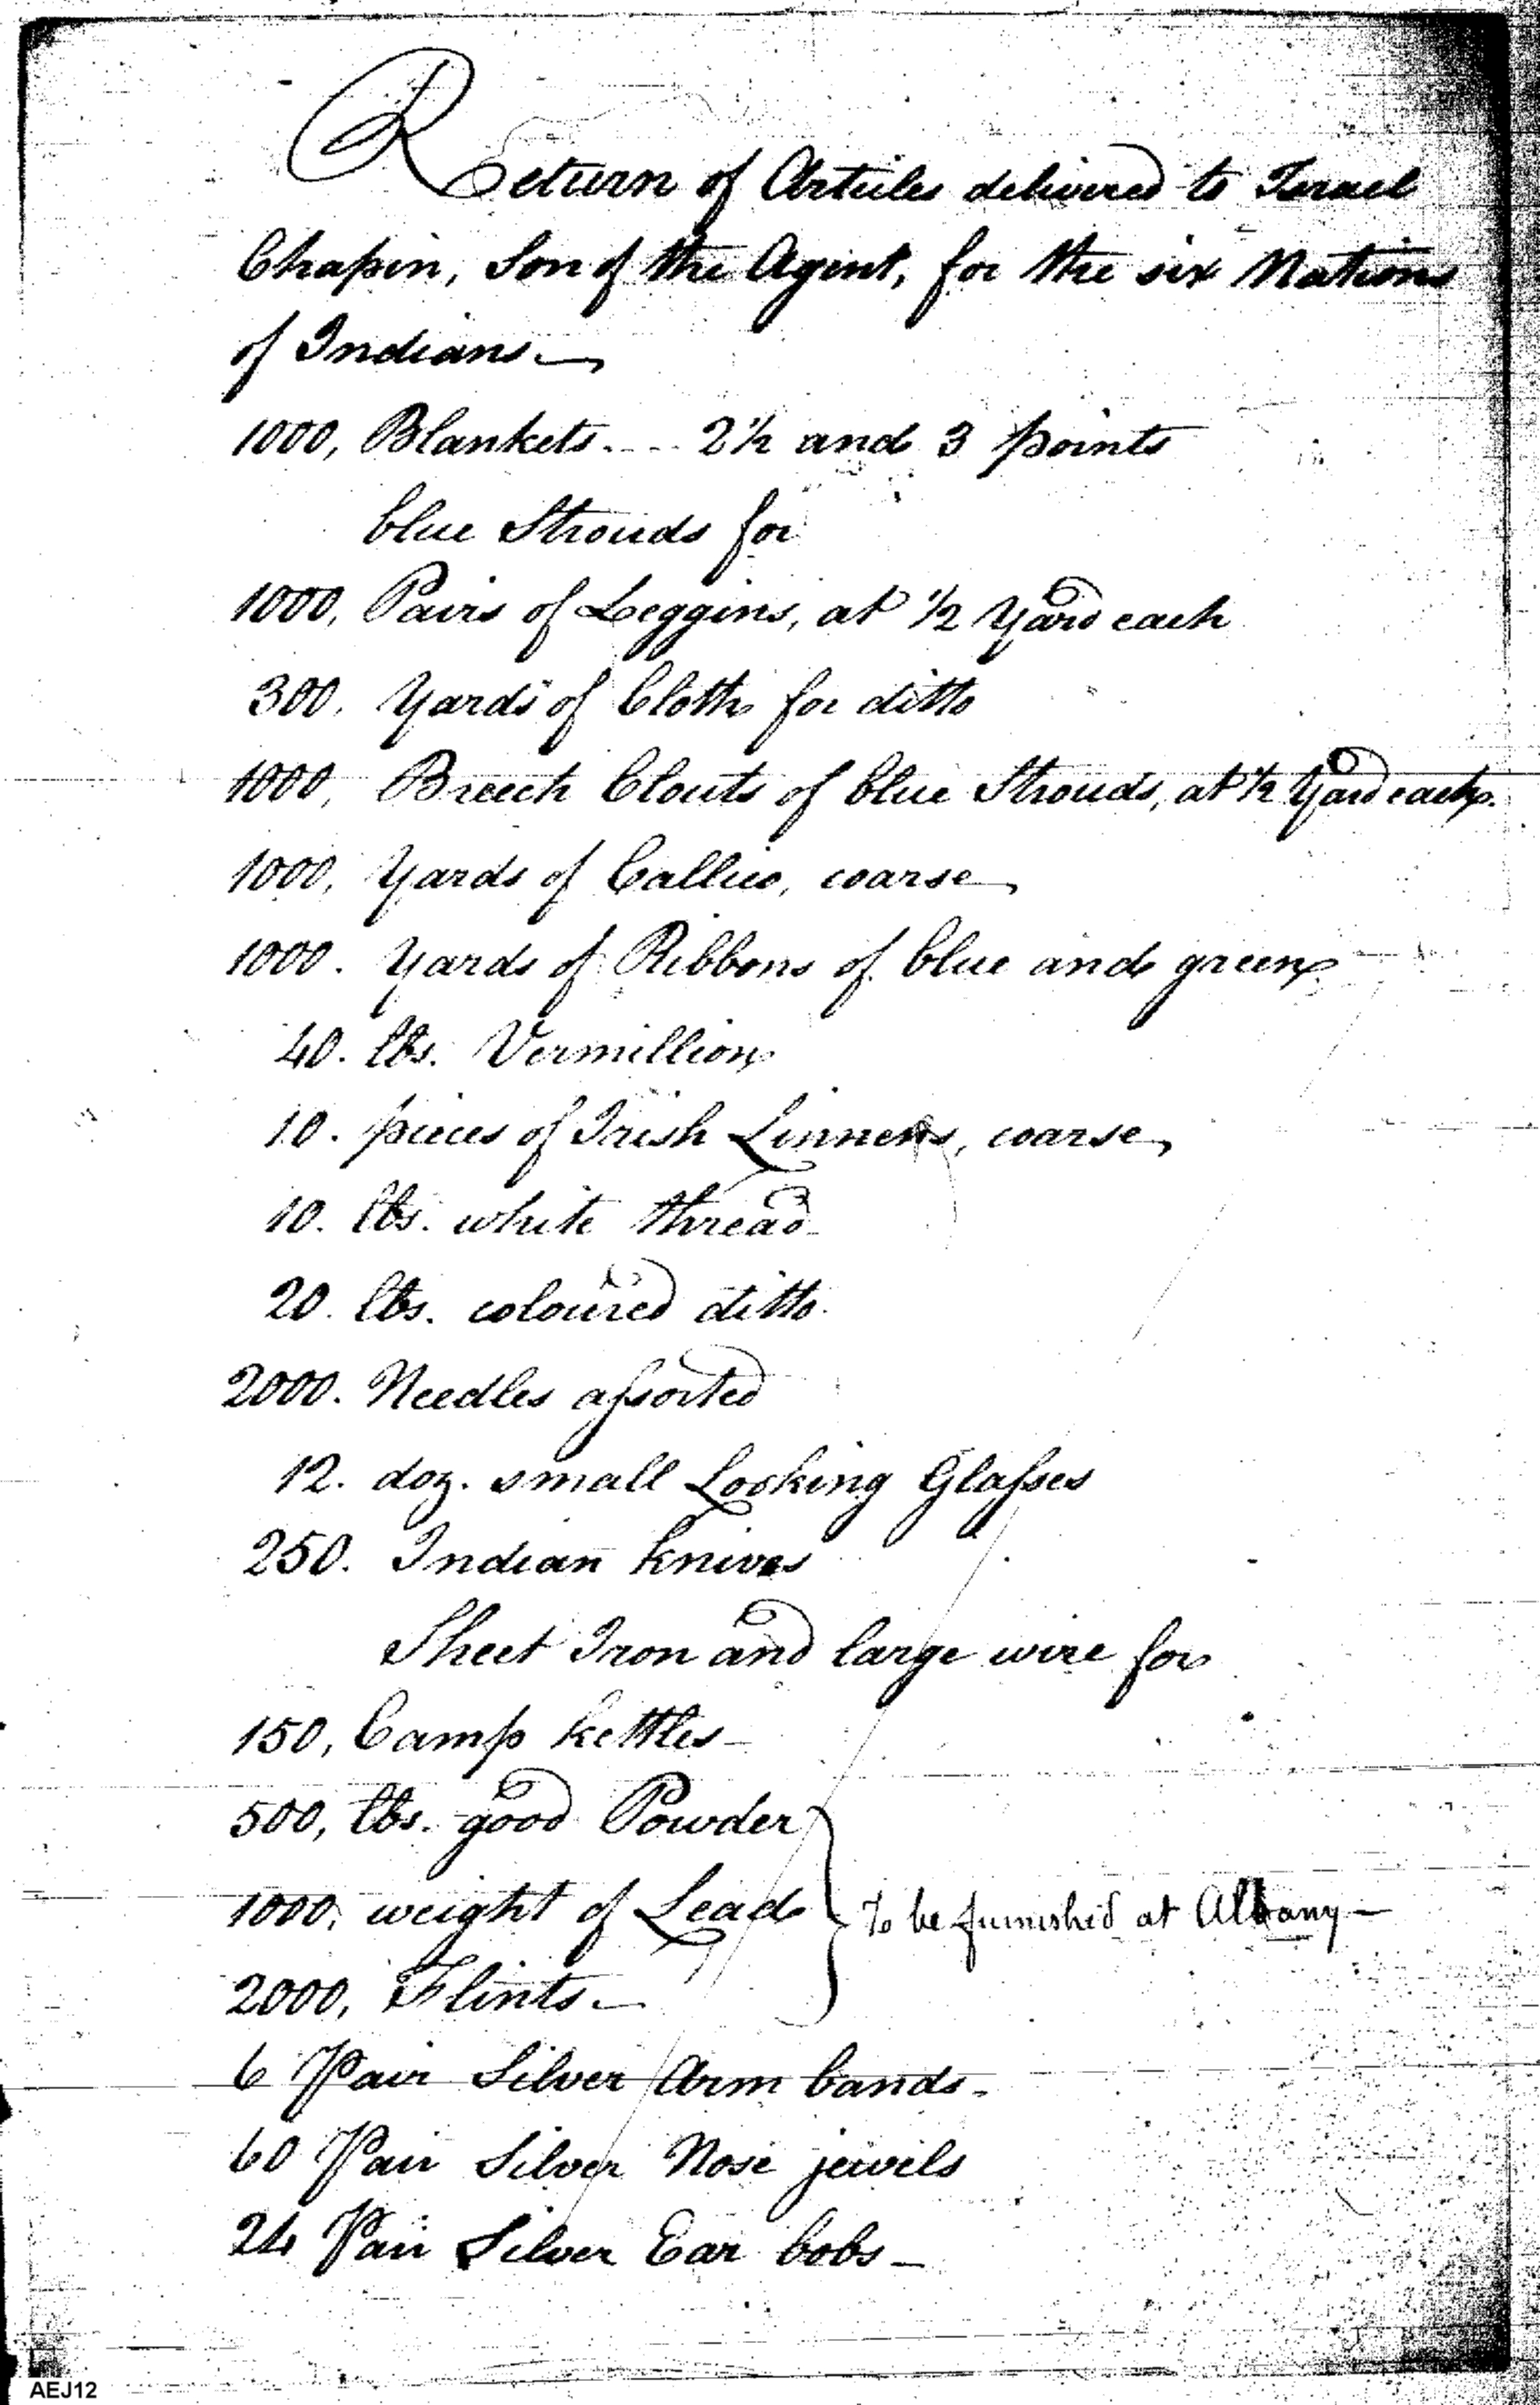 Return of Articles delivered to Israel
Chapin, Son of the Agent, for the six Nations
of Indians—
1000, Blankets.... 2½ and 3 points
blue Strouds for
1000, Pairs of Leggins, at ½ Yard each
300. Yards of Cloth for ditto
1000, Breech Clouts of blue Strouds, at ½ Yard each.
1000, Yards of Callico, coarse
1000. Yards of Ribbons of blue and green
40. lbs. Vermillion
10. pieces of Irish Linnens, coarse
10. lbs. white thread
20. lbs. coloured ditto.
2000. Needles assorted
12. doz. small Looking Glasses
250. Indian knives
Sheet Iron and large wire for
150, Camp kettles—
500, lbs. good Powder
1000, weight of Lead } To be furnished at Albany—
2000, Flints—
6 Pair Silver Arm bands—
60 Pair Silver Nose jewels
24 Pair Silver Ear bobs—
AEJ12